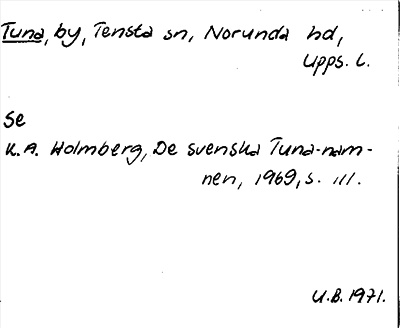 Tuna, by, Tensta sn, Norunda hd,
Upps. l.
Se
K.A. Holmberg, De svenska Tuna-nam-
nen, 1969, s. 111.
U.B. 1971.